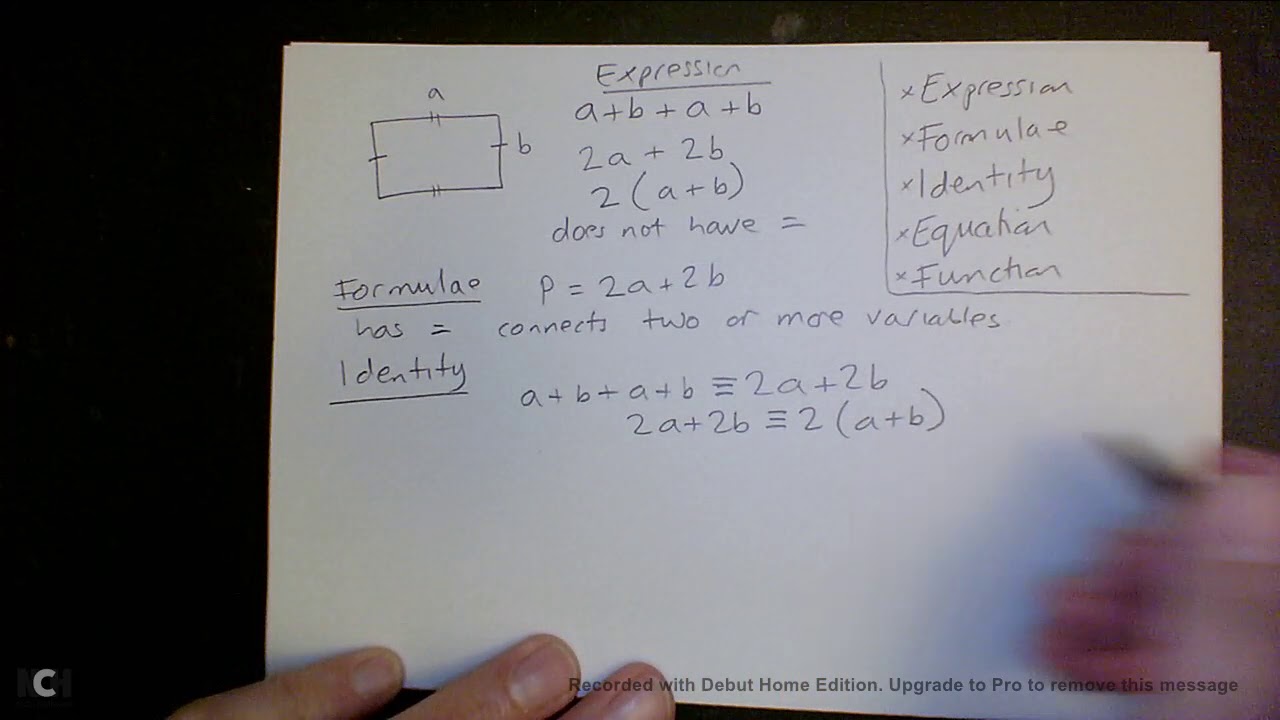 a
b
Expression
a+b+a+b
2a + 2b
2(a+b)
does not have =
×Expression
×Formulae
×Identity
×Equation
×Function
Formulae P = 2a+2b
has = connects two or more variables
Identity
a+b+a+b ≡ 2a+2b
2a+2b ≡ 2(a+b)
NCH
Recorded with Debut Home Edition. Upgrade to Pro to remove this message